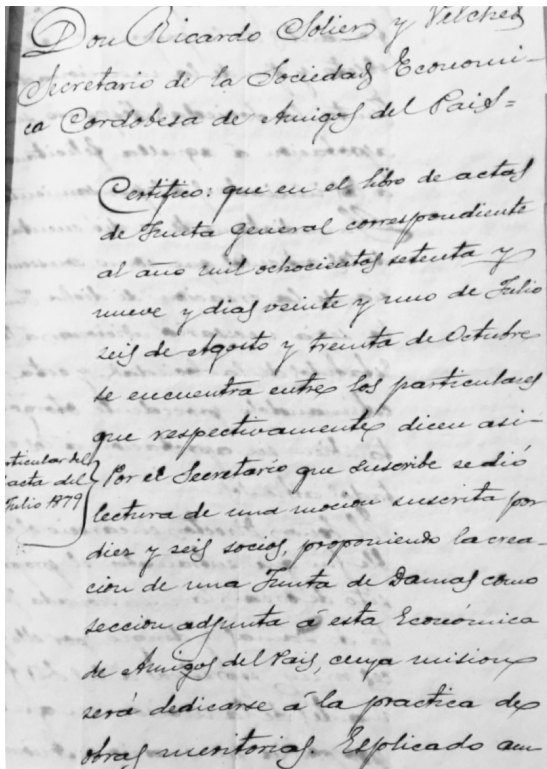 Don Ricardo Solier y Vilches
Secretario de la Sociedad Economi-
ca Cordobesa de Amigos del Pais=
Certifico: que en el libro de actas
de Junta general correspondiente
al año mil ochocientos setenta y
nueve y dias veinte y uno de Julio
seis de Agosto y treinta de Octubre
se encuentra entre los particulares
que respectivamente dicen asi-
rticular del
acta del
Julio 1879
Por el Secretario que suscribe se dió
lectura de una mocion suscrita por
diez y seis socios, proponiendo la crea-
cion de una Junta de Damas como
seccion adjunta á esta Económica
de Amigos del Pais, cuya mision
será dedicarse á la practica de
obras meritorias. Esplicado am